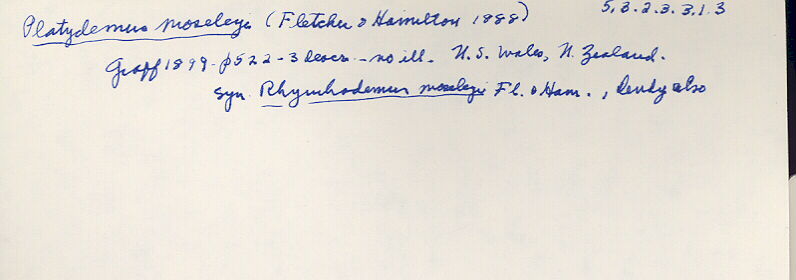 Platydemus moseleyi (Fletcher & Hamilton 1888) 5.3.2.3.3.1.3
Graff 1899 - p 522-3 descr - no ill. N.S. Wales, N. Zealand.
Syn. Rhynchodemus moseleyi Fl. & Ham., Dendy also